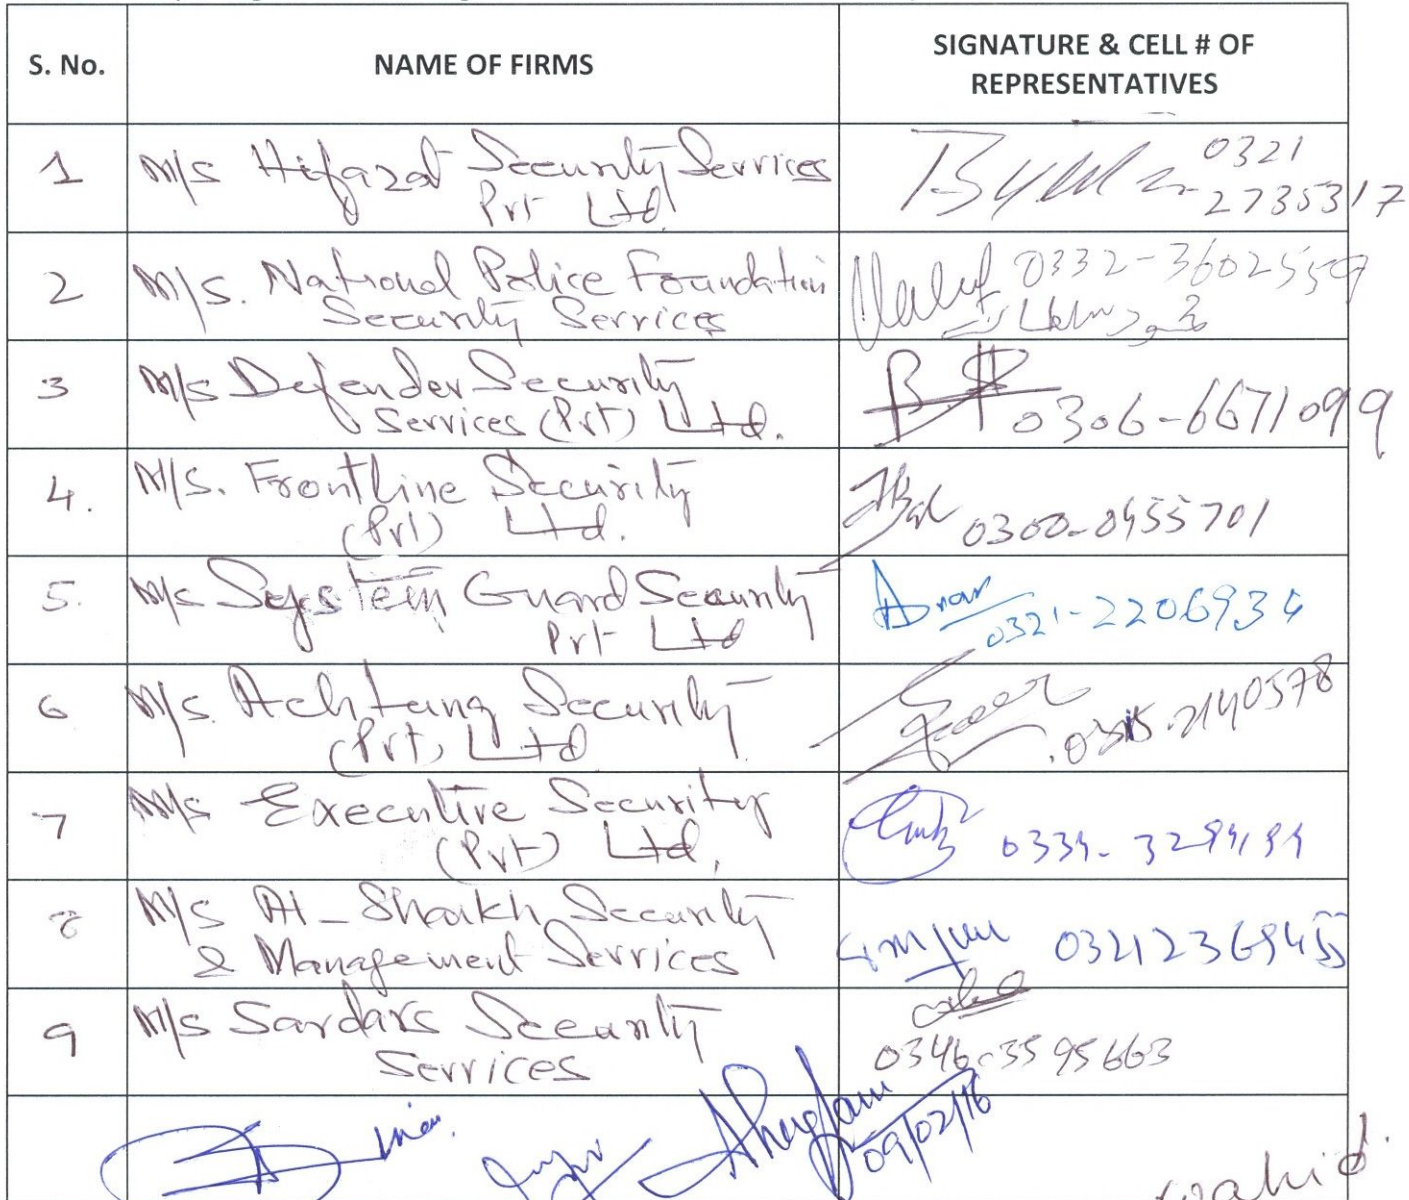 S. No.
NAME OF FIRMS
SIGNATURE & CELL # OF
REPRESENTATIVES
1
M/s Hifazat Security Services
Pvt Ltd
0321
2735317
2
M/s. National Police Foundation
Security Services
0332-3602559
3
M/s Defender Security
Services (Pvt) Ltd.
0306-6671099
4.
M/s. Frontline Security
(Pvt) Ltd.
0300-0955701
5.
M/s System Guard Security
Pvt Ltd
0321-2206934
6
M/s. Achtung Security
(Pvt) Ltd
7
M/s Executive Security
(Pvt) Ltd,
8
M/s Al-Shaikh Security
& Management Services
9
M/s Sardars Security
Services
0346-3595663
09/02/16